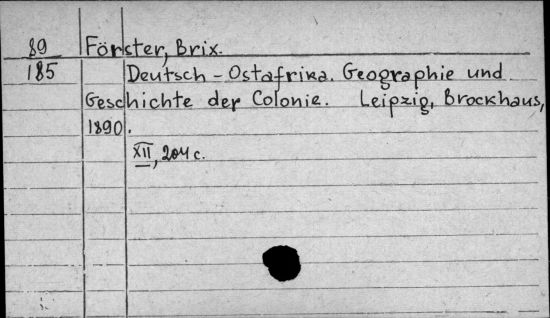 89 Förster, Brix.
185 Deutsch-Ostafrika. Geographie und
Geschichte der Colonie. Leipzig, Brockhaus,
1890.
XII, 204 c.